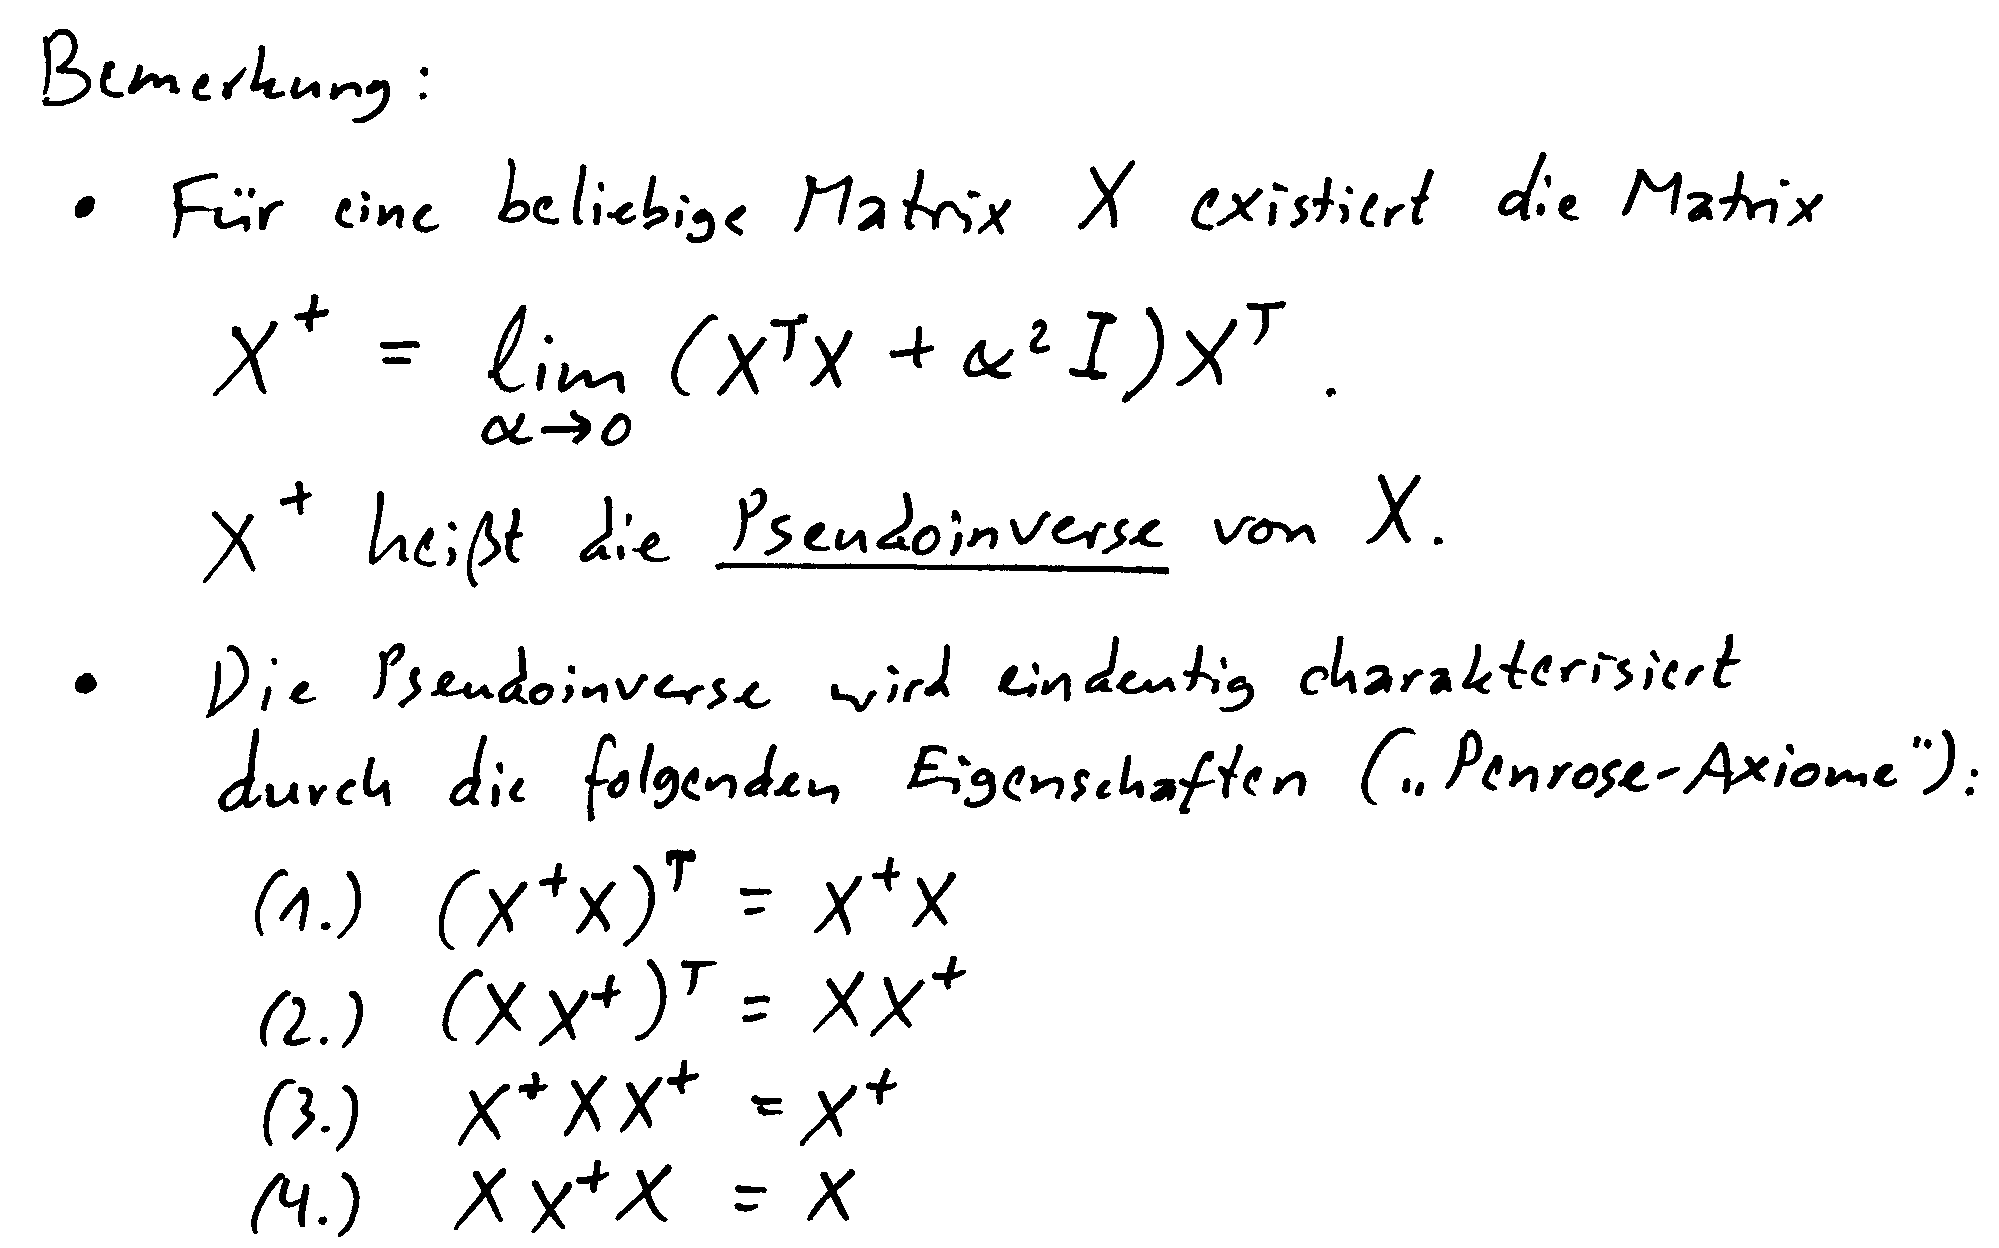 Bemerkung:
• Für eine beliebige Matrix X existiert die Matrix
X⁺ = lim (XᵀX + α²I)Xᵀ.
α→0
X⁺ heißt die Pseudoinverse von X.
• Die Pseudoinverse wird eindeutig charakterisiert
durch die folgenden Eigenschaften („Penrose-Axiome"):
(1.) (X⁺X)ᵀ = X⁺X
(2.) (XX⁺)ᵀ = XX⁺
(3.) X⁺XX⁺ = X⁺
(4.) XX⁺X = X